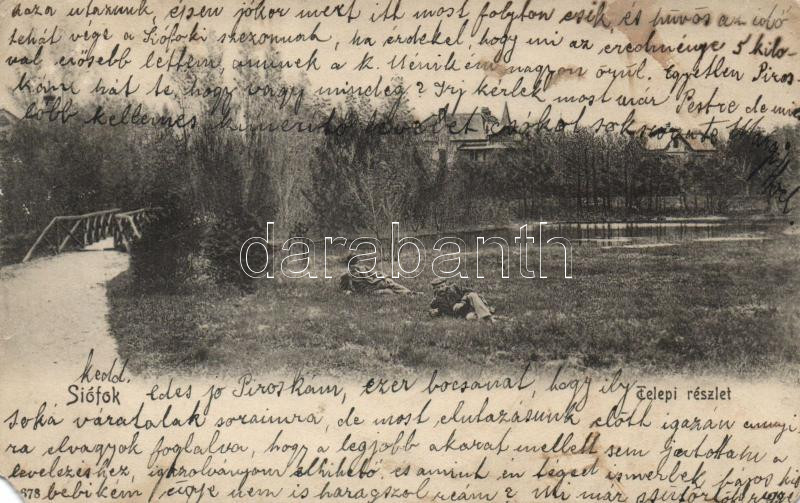 haza utazunk, épen jókor mert itt most folyton esik, és hüvös az idő
tehát vége a Siófoki szezonnak, ha érdekel, hogy mi az eredménye 5 kilo-
val erősebb lettem, aminek a k. nagyon örül. Egyetlen Piros-
kám hát te hogy vagy mindég? Irj kérlek most már Pestre de mi
több kellemes levelet csókol sokszor
darabanth
kedd.
Siófok
Telepi részlet
Édes jó Piroskám, ezer bocsánat, hogy ily
soká váratalak soraimra, de most elutazásunk előtt igazán annyi-
ra elvagyok foglalva, hogy a legjobb akarat mellett sem jutottam a
levelezéshez, igazolványom elhihető és amint én téged ismerlek bájos kis
678 bébikém ugye nem is haragszol reám? mi már